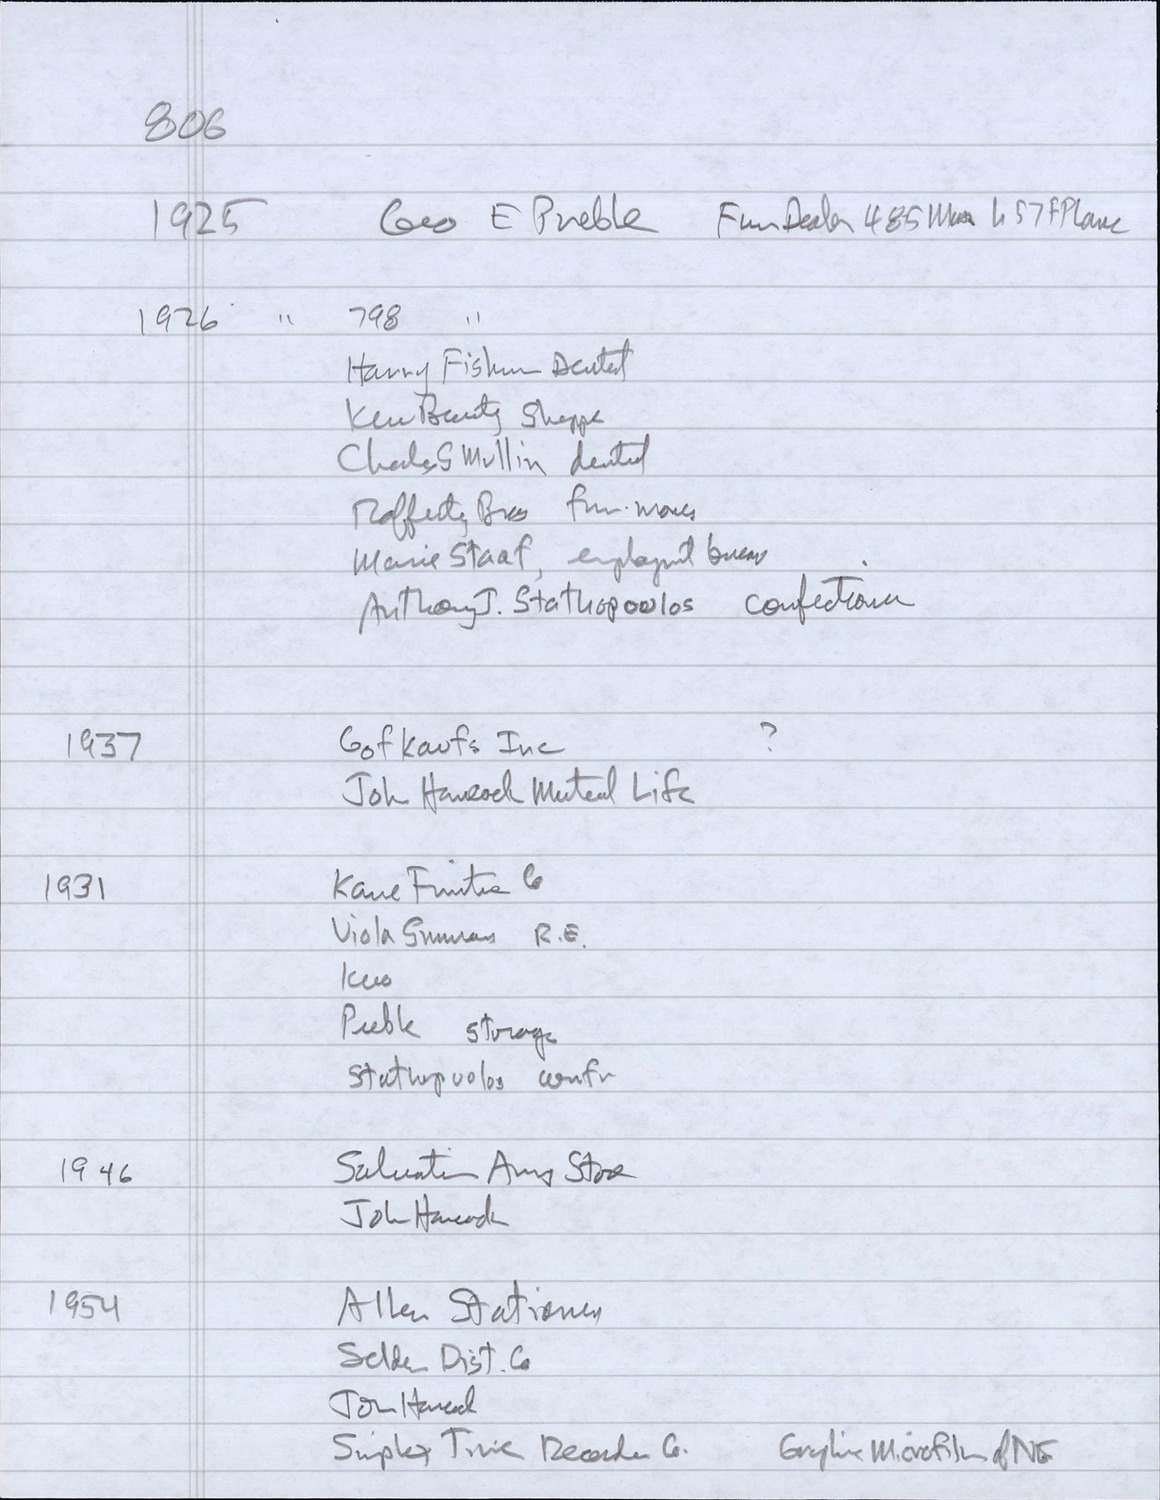 806
1925 Geo E Preble Furn Dealer 485 Main h 57 F Place
1926 " 798 "
Harry Fisher Dentist
Ken Beauty Shoppe
Charles S Mullin dentist
Rafferty Bros furn. movers
Marie Staaf, employmt bureau
Anthony J. Stathopoulos confectioner
1937 Gofkaufs Inc ?
John Hancock Mutual Life
1931 Kane Furniture Co
Viola R.E.
Preble storage
Stathopoulos confr
1946 Salvation Army Store
John Hancock
1954 Allen Stationery
Selden Dist. Co
John Hancock
Simplex Time Recorder Co. Graphic Microfilm of NE